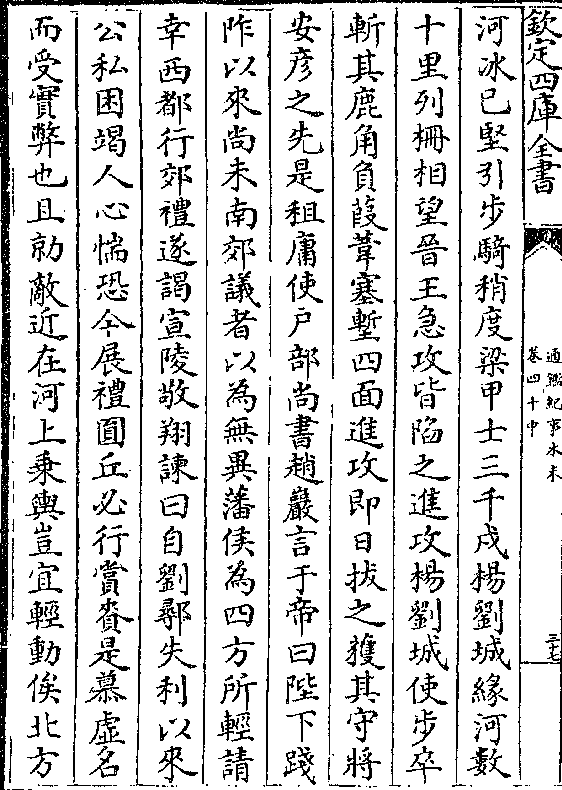 欽定四庫全書
通鑑紀事本末
卷四十中
三七
河冰已堅引步騎稍度梁甲士三千戍楊劉城緣河數
十里列柵相望晉王急攻皆陷之進攻楊劉城使步卒
斬其鹿角負葭葦塞塹四面進攻即日拔之獲其守將
安彦之先是租庸使戶部尚書趙巖言于帝曰陛下踐
阼以來尚未南郊議者以為無異藩侯為四方所輕請
幸西都行郊禮遂謁宣陵敬翔諫曰自劉鄩失利以來
公私困竭人心惴恐今展禮圓丘必行賞賚是慕虛名
而受實弊也且勍敵近在河上乗輿豈宜輕動俟北方